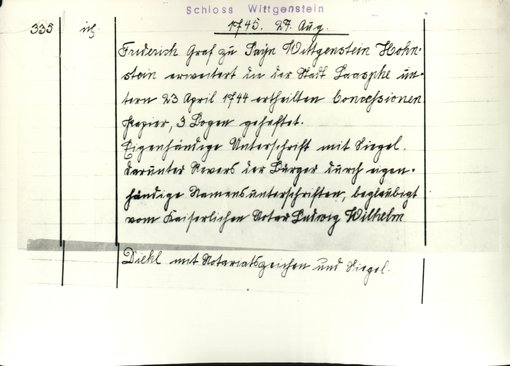 Schloss Wittgenstein
335 1745. 27. Aug.
Friderich Graf zu Sayn Wittgenstein Hohn-
stein erweitert die der Stadt Laasphe un-
term 23 April 1744 ertheilten Concessionen
Papier, 3 Bogen geheftet.
Eigenhändige Unterschrift mit Siegel.
Darunter Revers der Bürger durch eigen-
händige Namensunterschriften, beglaubigt
vom Kaiserlichen Notar Ludwig Wilhelm
Diehl mit Notariatszeichen und Siegel.